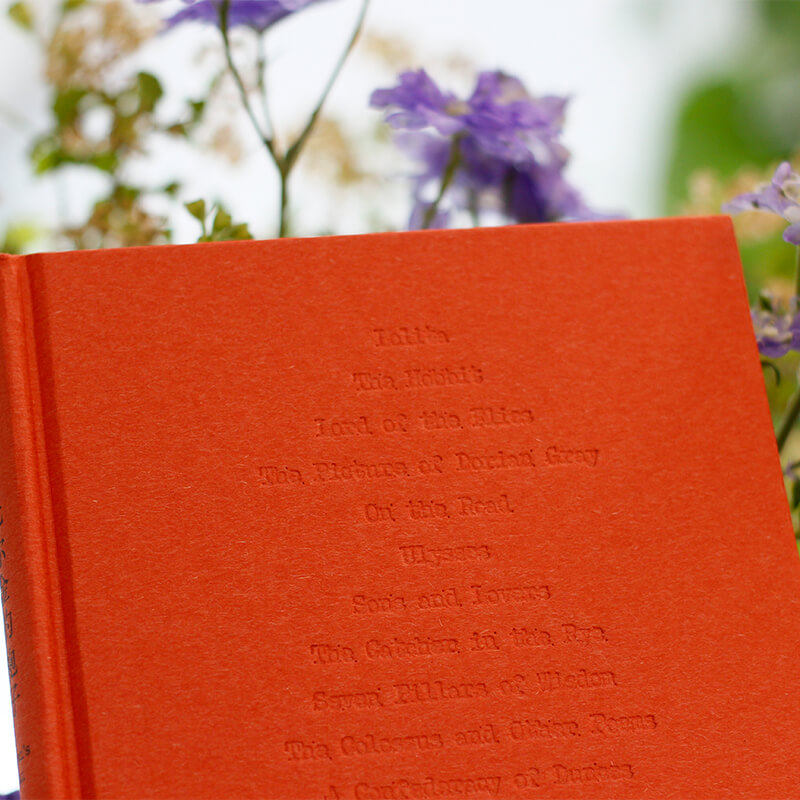 Lolita
The Hobbit
Lord of the Flies
The Picture of Dorian Gray
On the Road
Ulysses
Sons and Lovers
The Catcher in the Rye
Seven Pillars of Wisdom
The Colossus and Other Poems
A Confederacy of Dunces